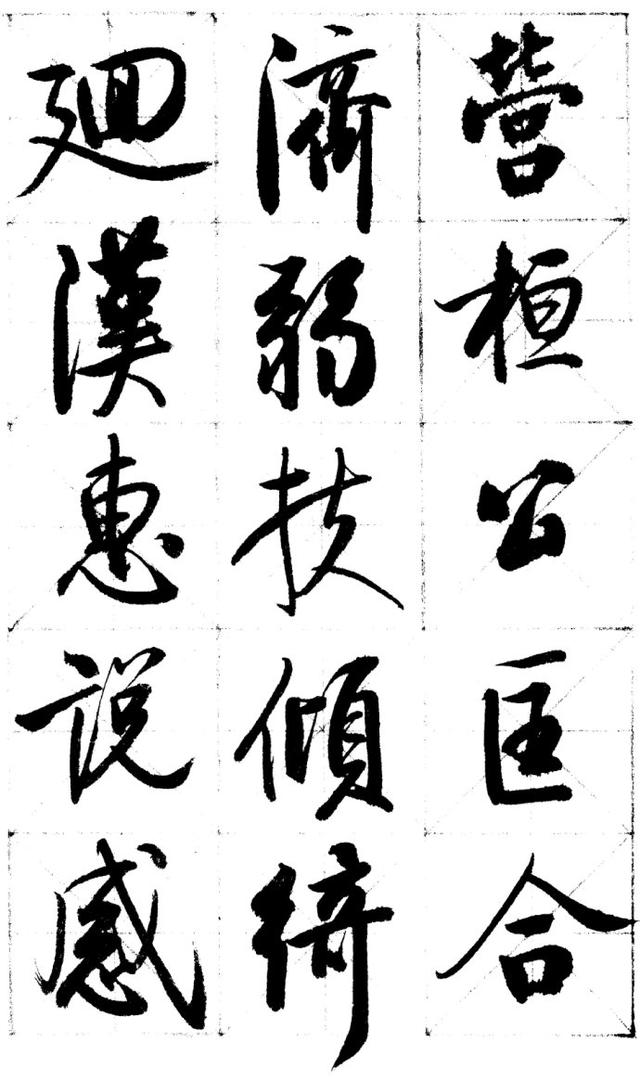 營桓公匡合
濟弱扶傾綺
迴漢惠説感